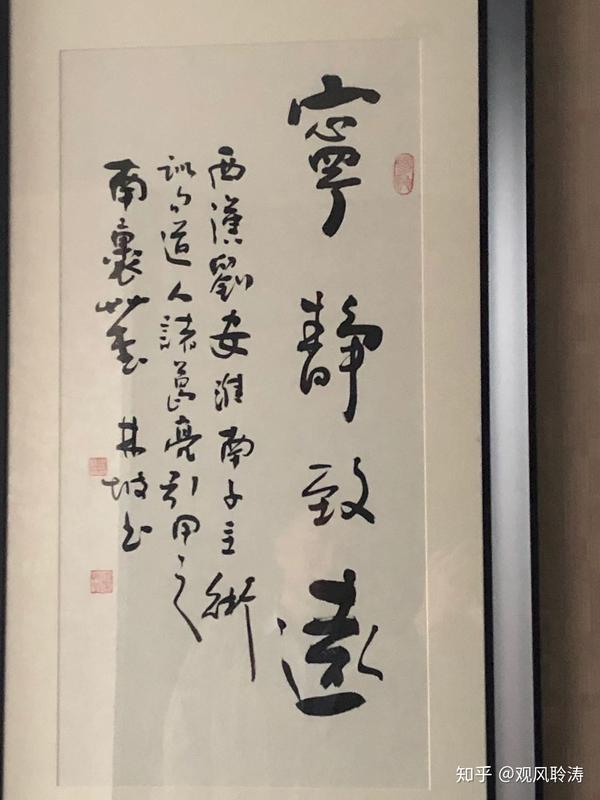 寧靜致遠
西漢劉安淮南子主術
訓句道人諸葛亮引用之
南裏艸堂 林坡书
知乎 @观风聆涛